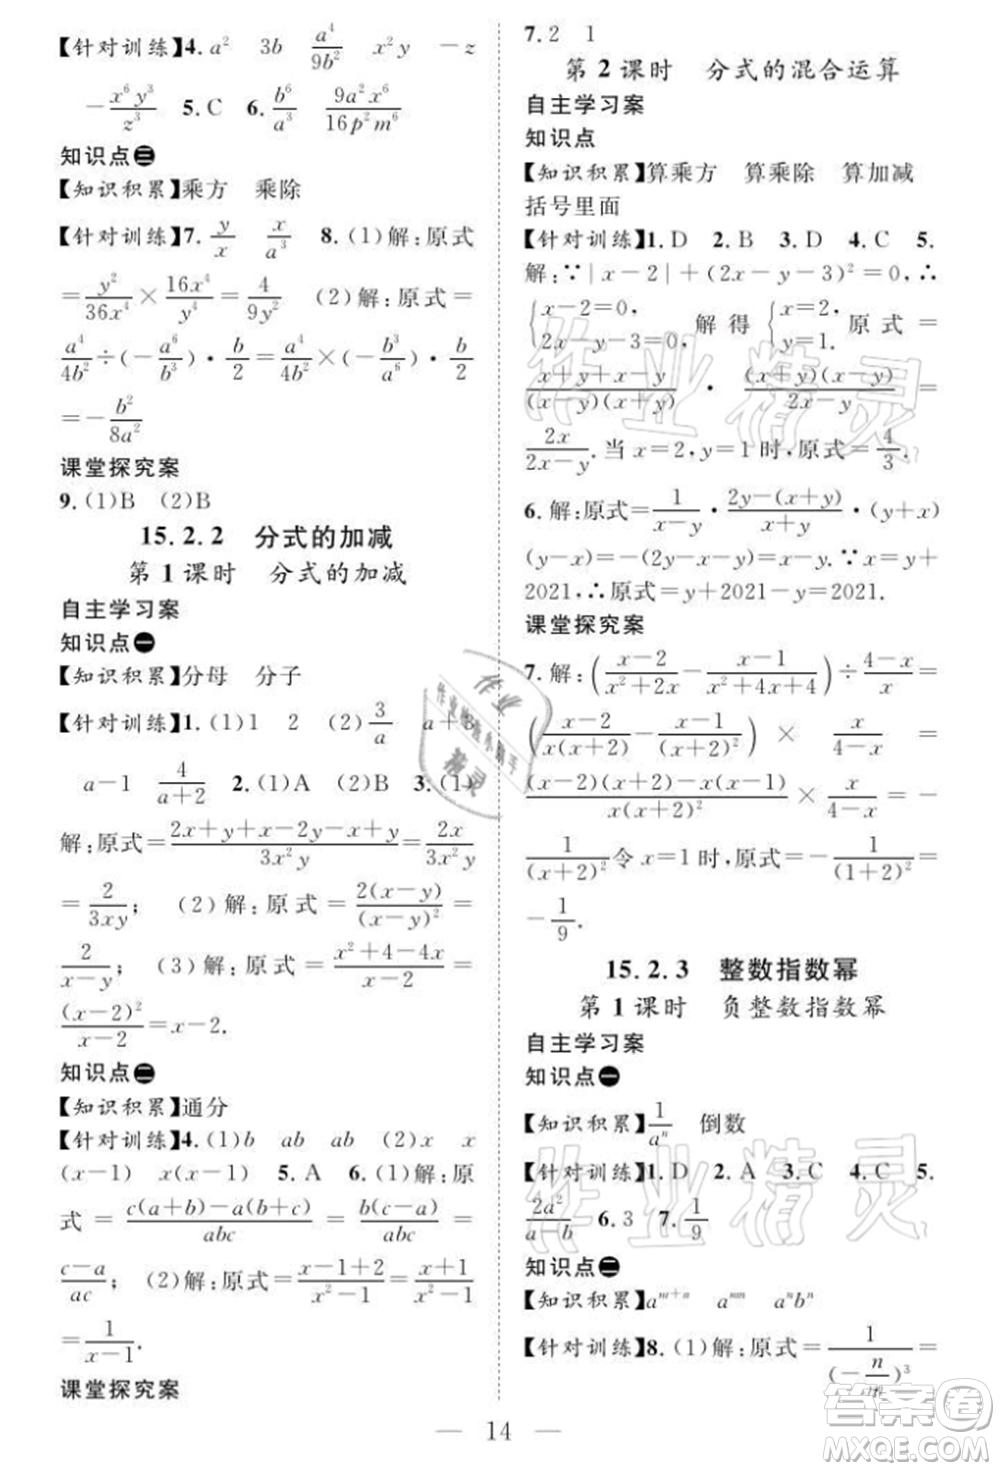 【针对训练】4. a²　3b　a⁴/9b²　x²y　−z
−x⁶y³/z³　5. C　6. b⁶/a³　9a²x⁶/16p²m⁶
知识点三
【知识积累】乘方　乘除
【针对训练】7. y/x　x/a³　8. (1)解:原式
=y²/36x⁴×16x⁴/y⁴=4/9y²　(2)解:原式=
a⁴/4b²÷(−a⁶/b³)·b/2=a⁴/4b²·(−b³/a⁶)·b/2
=−b²/8a²
课堂探究案
9. (1)B　(2)B
15.2.2　分式的加减
第1课时　分式的加减
自主学习案
知识点一
【知识积累】分母　分子
【针对训练】1. (1)1　2　(2)3/a　a+3
a−1　4/(a+2)　2. (1)A　(2)B　3. (1)
解:原式=(2x+y+x−2y−x+y)/3x²y=2x/3x²y
=2/3xy;　(2)解:原式=2(x−y)/(x−y)²=
2/(x−y);　(3)解:原式=(x²+4−4x)/(x−2)=
(x−2)²/(x−2)=x−2.
知识点二
【知识积累】通分
【针对训练】4. (1)b　ab　ab　(2)x　x
(x−1)　x(x−1)　5. A　6. (1)解:原
式=(c(a+b)−a(b+c))/abc=b(c−a)/abc=
(c−a)/ac　(2)解:原式=(x−1+2)/(x²−1)=(x+1)/(x²−1)
=1/(x−1).
课堂探究案
7. 2　1
第2课时　分式的混合运算
自主学习案
知识点
【知识积累】算乘方　算乘除　算加减
括号里面
【针对训练】1. D　2. B　3. D　4. C　5.
解:∵|x−2|+(2x−y−3)²=0,∴
{x−2=0, 2x−y−3=0, 解得 {x=2, y=1. 原式=
(x+y+x−y)/(x−y)(x+y)·(x+y)(x−y)/(2x−y)=
2x/(2x−y).当x=2,y=1时,原式=4/3.
6. 解:原式=1/(x−y)·(2y−(x+y))/(x+y)·(y+x)
(y−x)=−(y−x)=x−y.∵x=y+
2021,∴原式=y+2021−y=2021.
课堂探究案
7. 解:((x−2)/(x²+2x)−(x−1)/(x²+4x+4))÷(4−x)/x=
((x−2)/x(x+2)−(x−1)/(x+2)²)×x/(4−x)=
((x−2)(x+2)−x(x−1))/x(x+2)²×x/(4−x)=−
1/(x+2)²令x=1时,原式=−1/(1+2)²=
−1/9.
15.2.3　整数指数幂
第1课时　负整数指数幂
自主学习案
知识点一
【知识积累】1/aⁿ　倒数
【针对训练】1. D　2. A　3. C　4. C　5.
2a²/(a−b)　6. 3　7. 1/9
知识点二
【知识积累】aᵐ⁺ⁿ　aᵐⁿ　aⁿbⁿ
【针对训练】8. (1)解:原式=1/(−n/m)³=
— 14 —
作业精灵
作业精灵
作业
精灵
答案圈
MXQE.COM